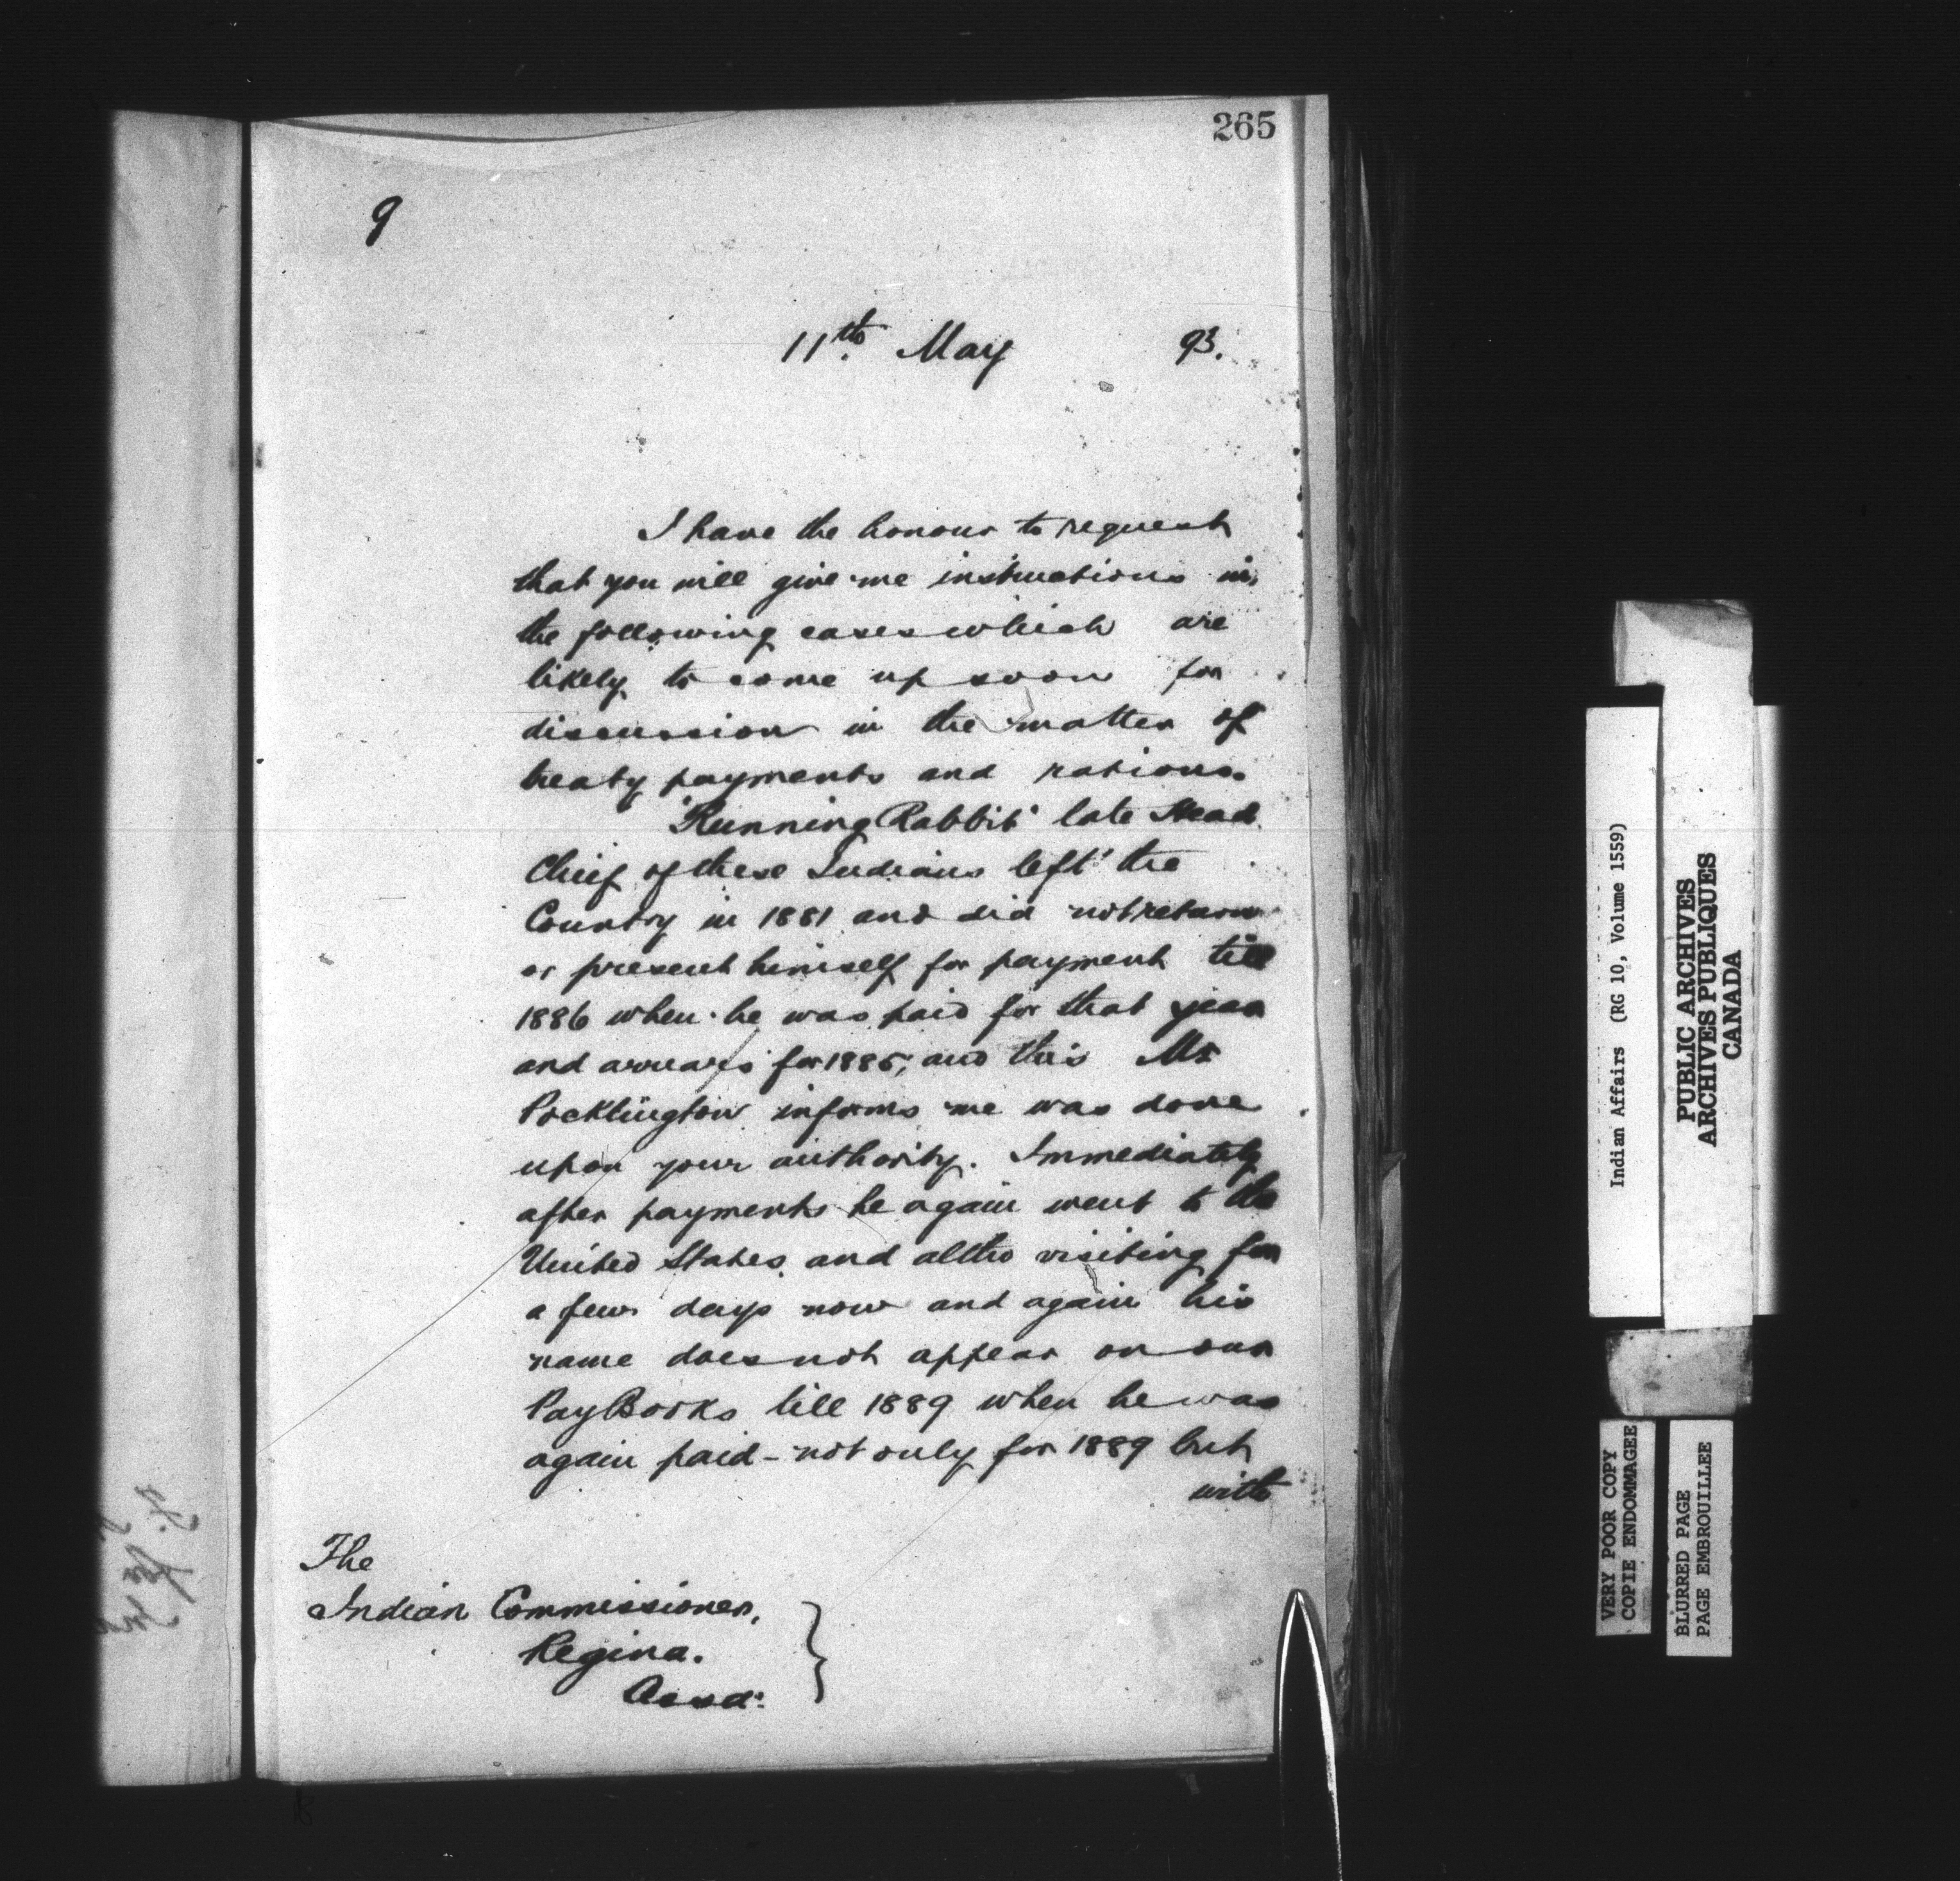 265
9
11th May 93.
I have the honour to request
that you will give me instructions in
the following cases which are
likely to come up soon for
discussion in the matter of
treaty payments and rations.
"Running Rabbit" late Head
Chief of these Indians left the
Country in 1881 and did not return
or present himself for payment till
1886 when he was paid for that year
and arrears for 1885, and this Mr
Pocklington informs me was done
upon your authority. Immediately
after payments he again went to the
United States and altho visiting for
a few days now and again his
name does not appear on our
Pay Books till 1889 when he was
again paid - not only for 1889 but
with
The
Indian Commissioner,
Regina.
Assa:
Indian Affairs (RG 10, Volume 1559)
PUBLIC ARCHIVES
ARCHIVES PUBLIQUES
CANADA
VERY POOR COPY
COPIE ENDOMMAGEE
BLURRED PAGE
PAGE EMBROUILLEE